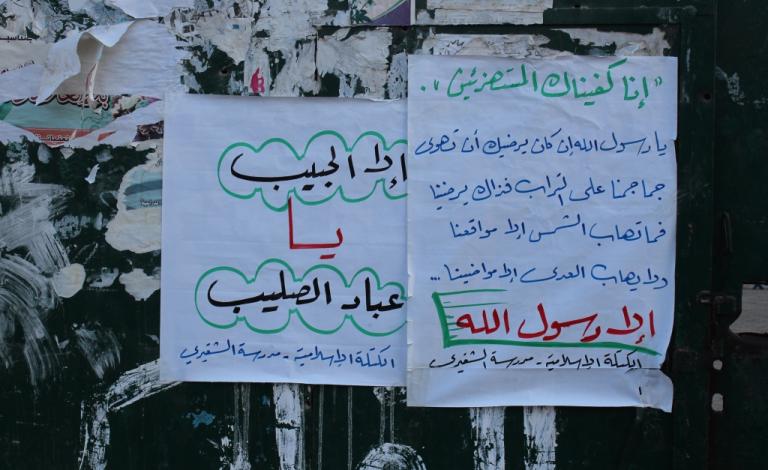 " إنا كفيناك المستهزئين "
يا رسول الله إن كان يرضيك أن تهوى
جماجمنا على التراب فذاك يرضينا
فما تهاب الشمس إلا مواقعنا
ولا يهاب العدى إلا مواضينا ...
إلا رسول الله
الكتلة الإسلامية - مدرسة الشقيري
إلا الحبيب
يا
عباد الصليب
الكتلة الإسلامية - مدرسة الشقيري